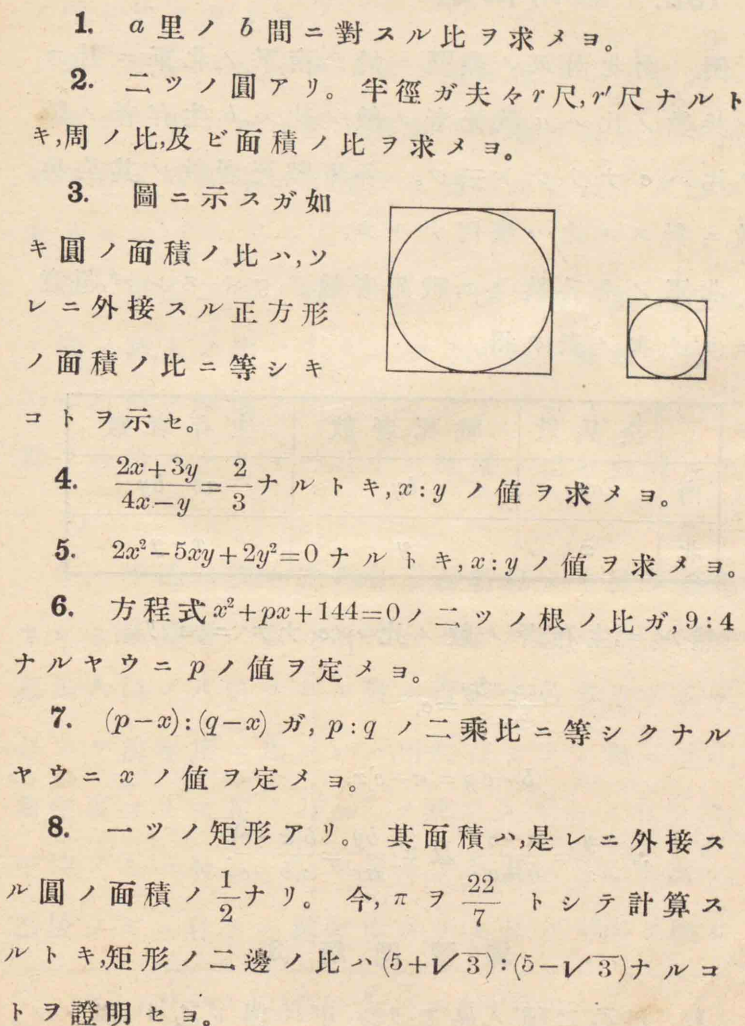 1. a里ノb間ニ對スル比ヲ求メヨ。
2. 二ツノ圓アリ。半徑ガ夫々r尺,r′尺ナルト
キ,周ノ比,及ビ面積ノ比ヲ求メヨ。
3. 圖ニ示スガ如
キ圓ノ面積ノ比ハ,ソ
レニ外接スル正方形
ノ面積ノ比ニ等シキ
コトヲ示セ。
4. \frac{2x+3y}{4x-y}=\frac{2}{3}ナルトキ,x:yノ値ヲ求メヨ。
5. 2x²−5xy+2y²=0ナルトキ,x:yノ値ヲ求メヨ。
6. 方程式x²+px+144=0ノ二ツノ根ノ比ガ,9:4
ナルヤウニpノ値ヲ定メヨ。
7. (p−x):(q−x)ガ,p:qノ二乘比ニ等シクナル
ヤウニxノ値ヲ定メヨ。
8. 一ツノ矩形アリ。其面積ハ,是レニ外接ス
ル圓ノ面積ノ\frac{1}{2}ナリ。今,πヲ\frac{22}{7}トシテ計算ス
ルトキ,矩形ノ二邊ノ比ハ(5+√3):(5−√3)ナルコ
トヲ證明セヨ。